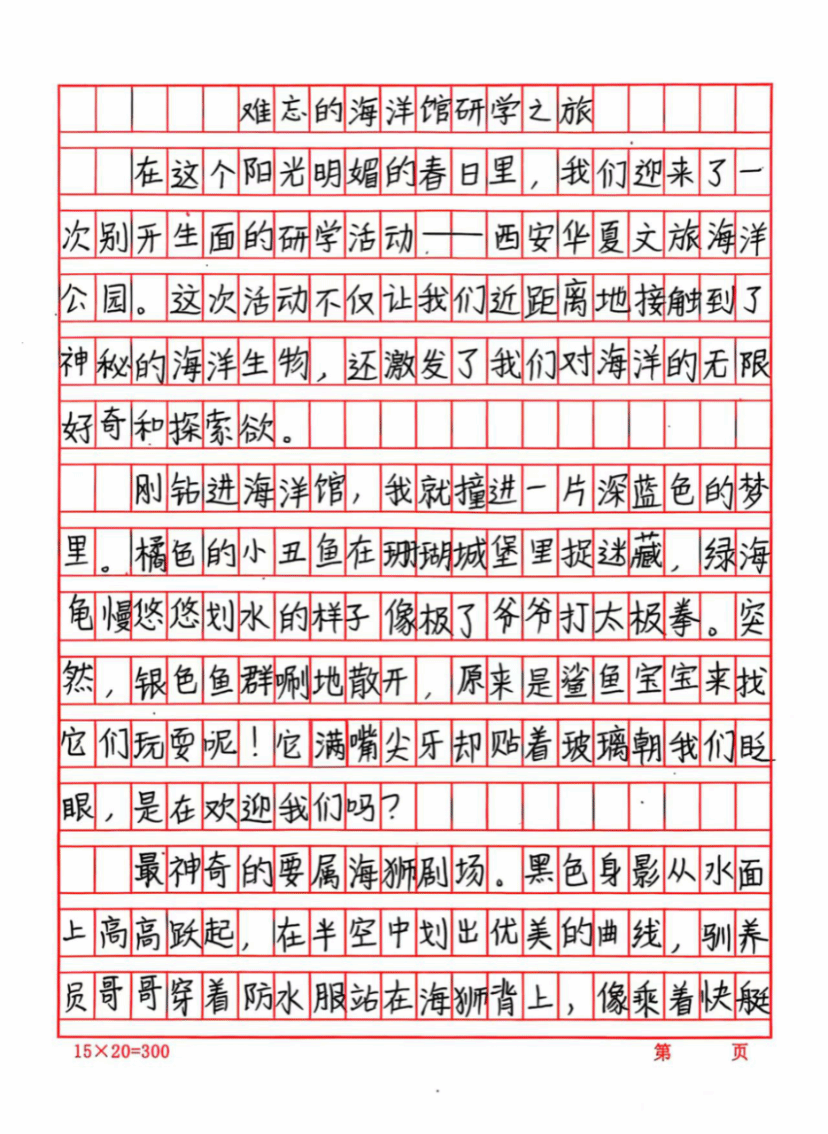 难忘的海洋馆研学之旅
在这个阳光明媚的春日里，我们迎来了一
次别开生面的研学活动——西安华夏文旅海洋
公园。这次活动不仅让我们近距离地接触到了
神秘的海洋生物，还激发了我们对海洋的无限
好奇和探索欲。
刚钻进海洋馆，我就撞进一片深蓝色的梦
里。橘色的小丑鱼在珊瑚城堡里捉迷藏，绿海
龟慢悠悠划水的样子像极了爷爷打太极拳。突
然，银色鱼群唰地散开，原来是鲨鱼宝宝来找
它们玩耍呢！它满嘴尖牙却贴着玻璃朝我们眨
眼，是在欢迎我们吗？
最神奇的要属海狮剧场。黑色身影从水面
上高高跃起，在半空中划出优美的曲线，驯养
员哥哥穿着防水服站在海狮背上，像乘着快艇
15×20=300 第 页